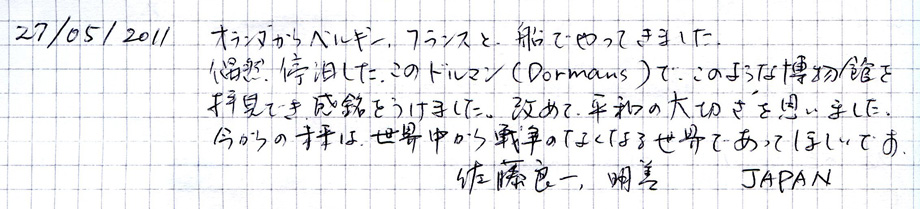 27/05/2011 オランダからベルギー、フランスと、船でやってきました。
偶然、停泊した、このドルマン(Dormans)で、このような博物館を
拝見でき、感銘をうけました。改めて、平和の大切さを思いました。
今からの未来は、世界中から戦争のなくなる世界であってほしいです。
佐藤良一、明美 JAPAN